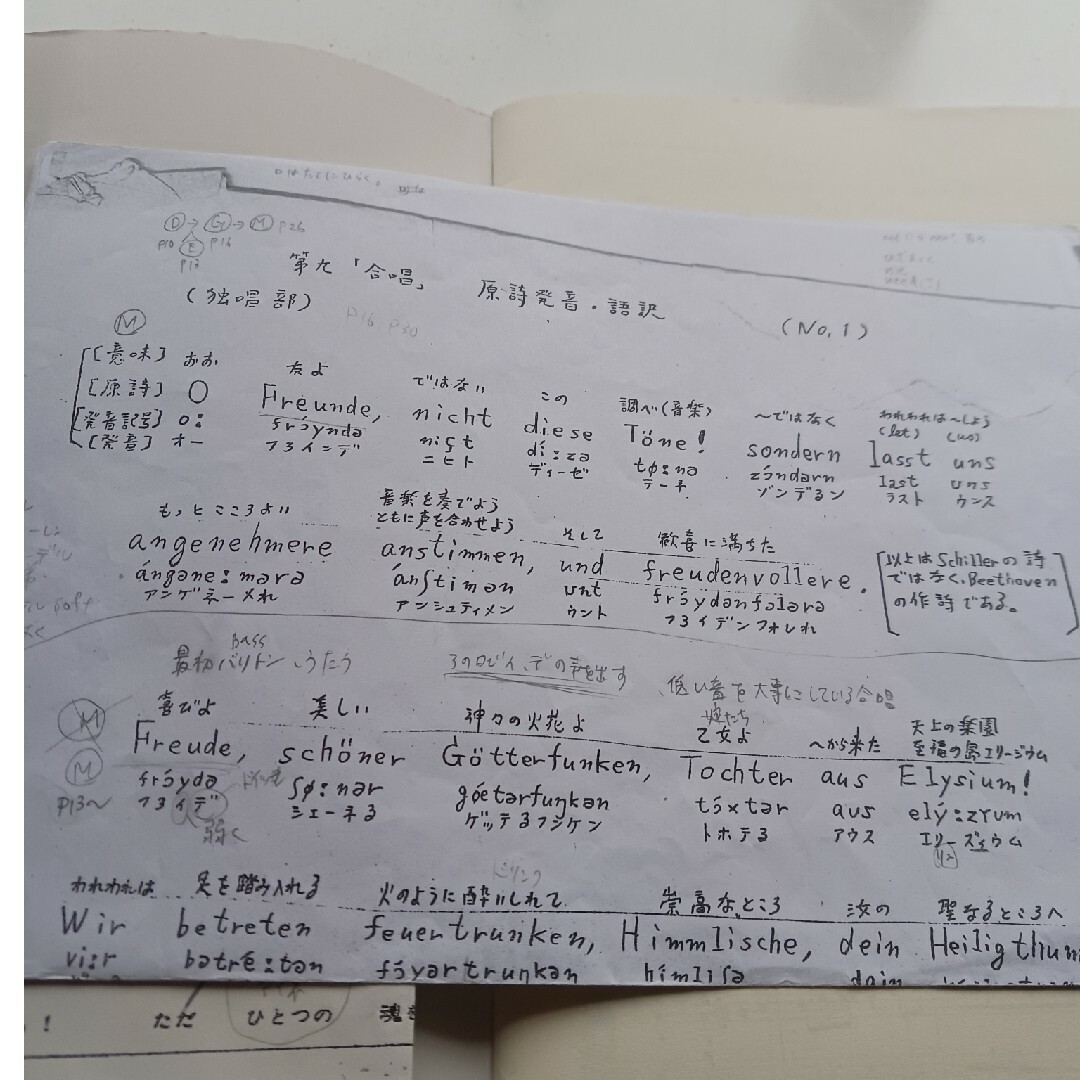 口はたてにひらく。
Ⓓ→Ⓖ→Ⓜ P26
P10 Ⓔ P16
P13
第九「合唱」 原詩発音・語訳
(独唱部) (No.1)
P16 P30
Ⓜ
[意味] おお 友よ ではない この 調べ(音楽) 〜ではなく われわれは〜しよう
(let) (us)
[原詩] O Freunde, nicht diese Töne! sondern lasst uns
[発音記号] o: frɔ́yndə niçt dí:zə tø:nə zɔ́ndərn last ʊns
[発音] オー フろインデ ニヒト ディーゼ テーネ ゾンデるン ラスト ウンス
もっとこころよい 音楽を奏でよう
ともに声を合わせよう そして 歓喜に満ちた
angenehmere anstimmen, und freudenvollere.
ángəne:mərə ánʃtimən ʊnt frɔ́ydənfɔlərə
アンゲネーメれ アンシュティメン ウント フろイデンフォレれ
[以上はSchillerの詩
ではなく、Beethoven
の作詩である。]
Bass
最初バリトン、うたう
低い音を大事にしている合唱
喜びよ 美しい 神々の火花よ 乙女よ 〜から来た 天上の楽園
至福の島エリージウム
Ⓜ Freude, schöner Götterfunken, Tochter aus Elysium!
Ⓜ frɔ́ydə ʃø:nər gœ́tərfuŋkən tɔ́xtər aʊs elý:zɪʊm
P13〜 フろイデ シェーネる ゲッテるフンケン トホテる アウス エリーズィウム
弱く
われわれは 足を踏み入れる 火のように酔いしれて 崇高なところ 汝の 聖なるところへ
Wir betreten feuertrunken, Himmlische, dein Heiligthum
vi:r bətré:tən fɔ́yərtruŋkən hímliʃə dain
! ただ ひとつの 魂を